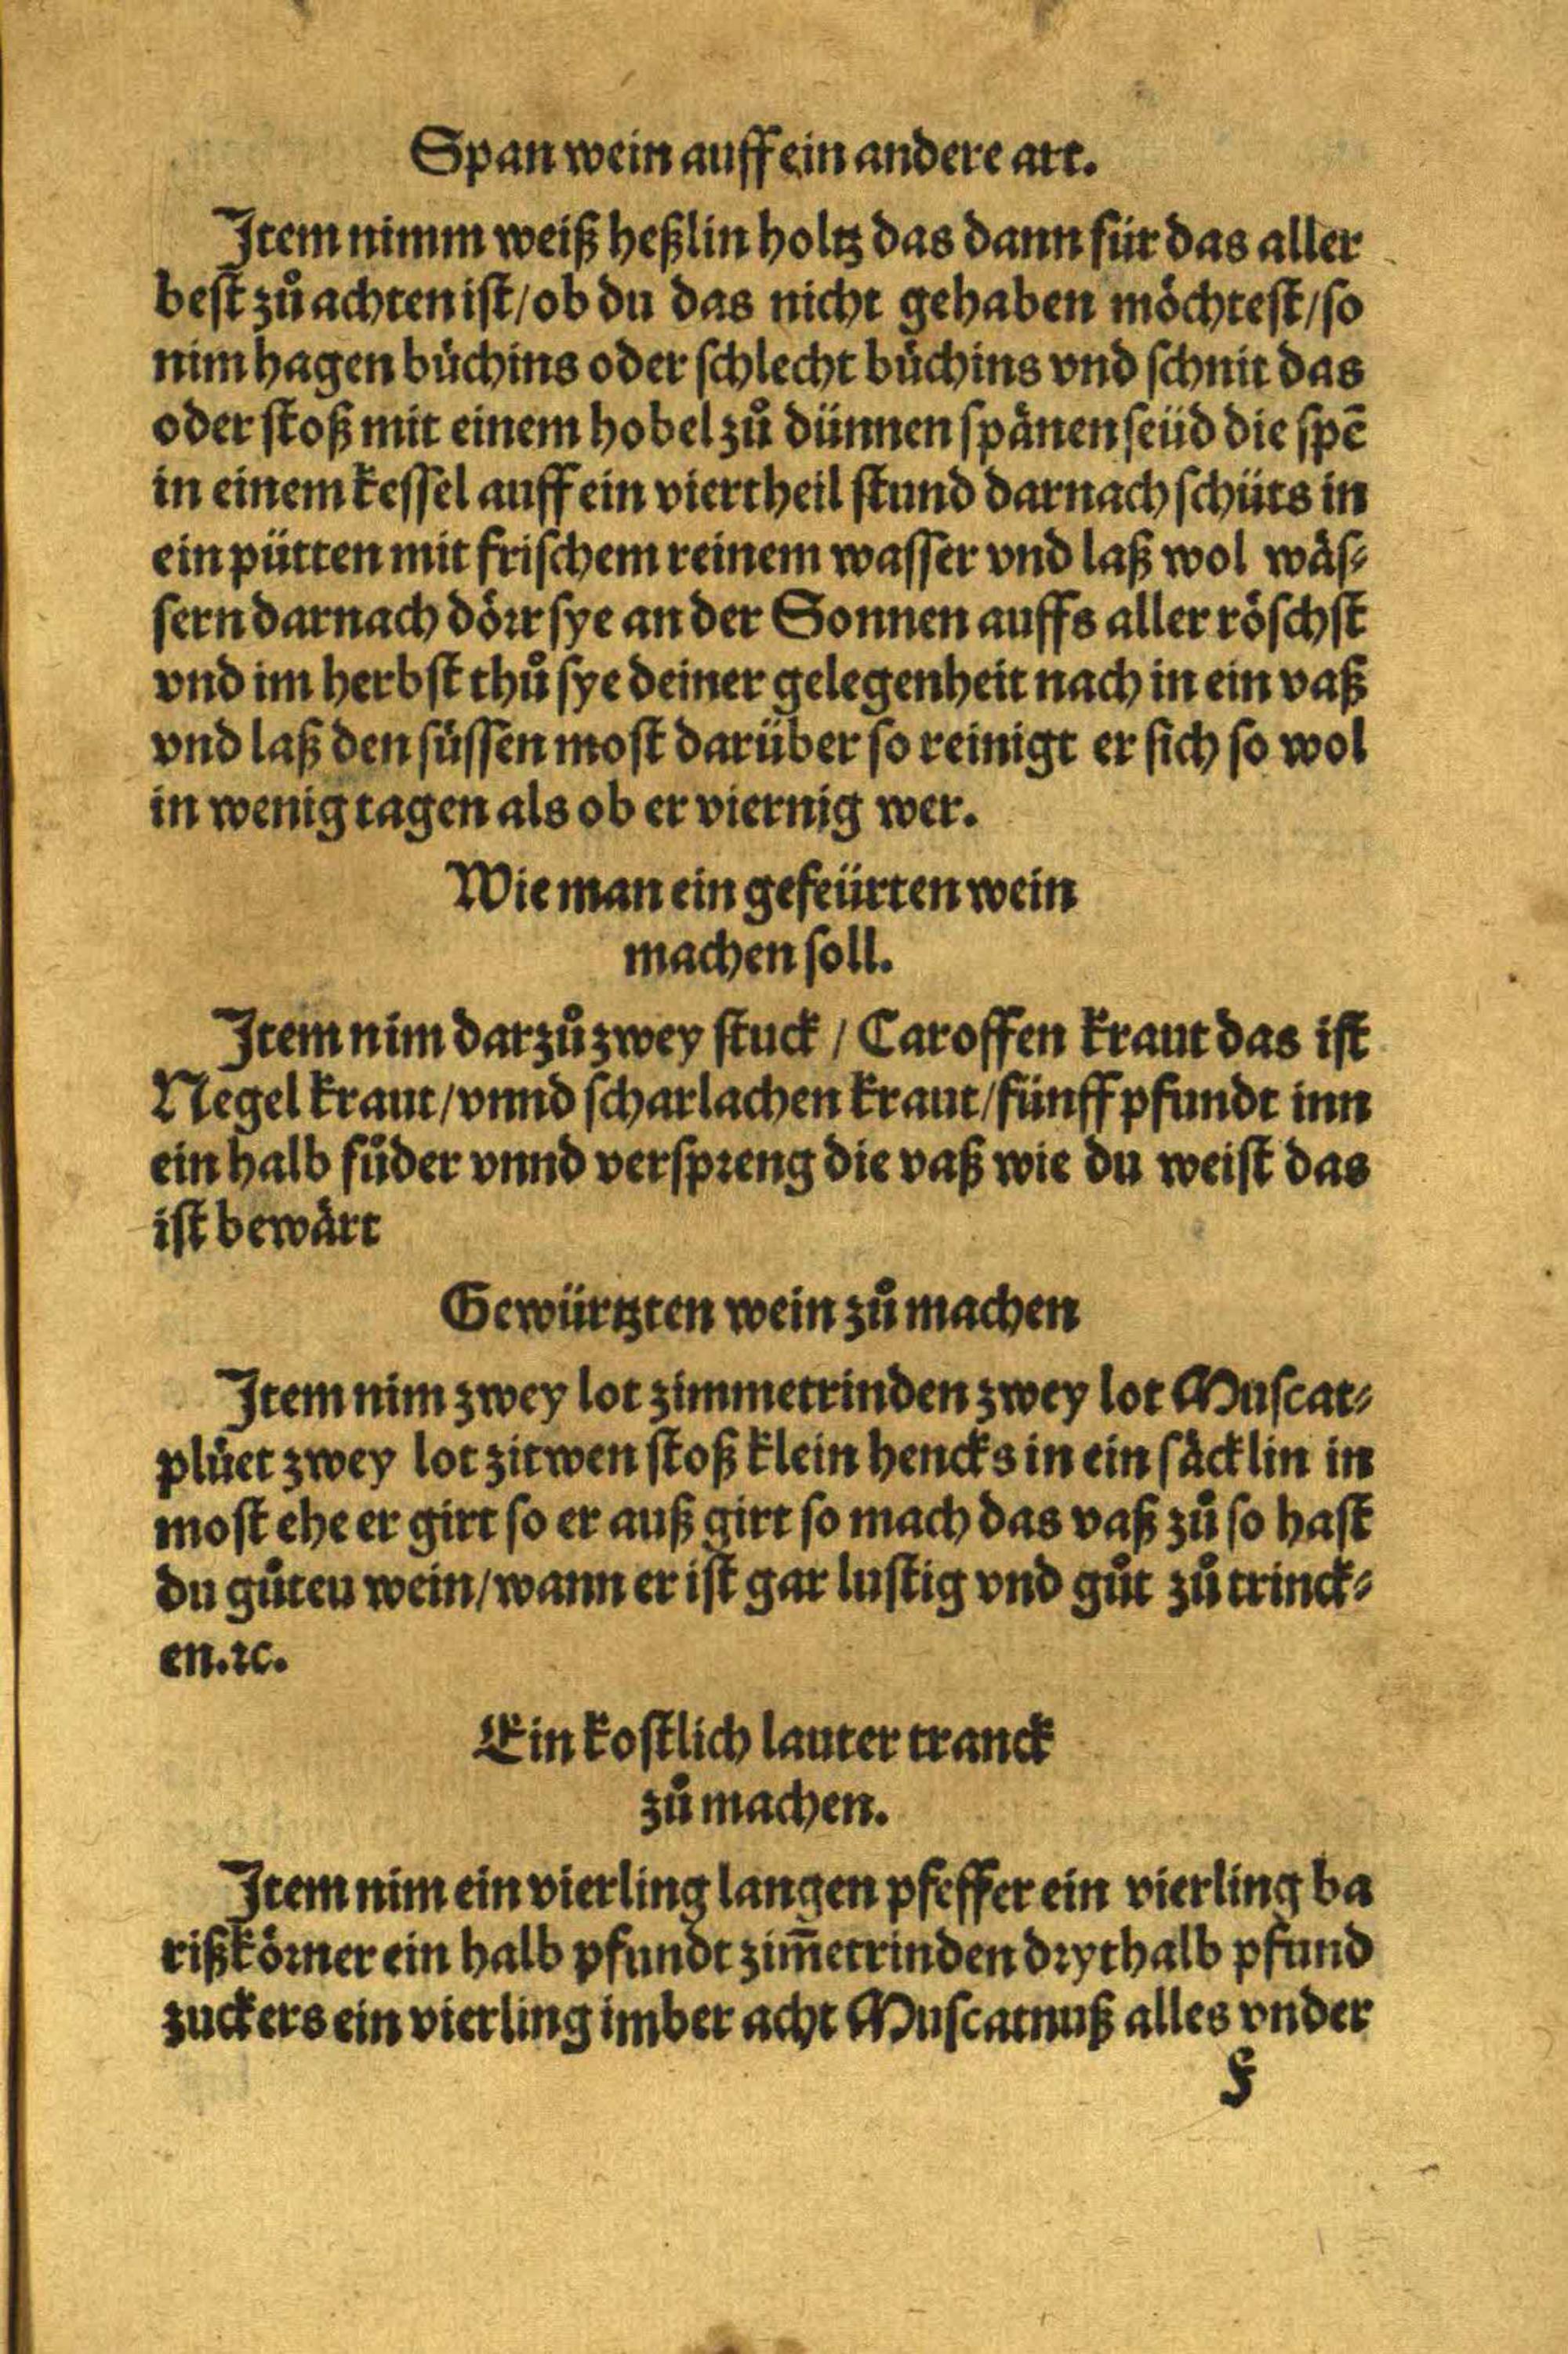 Span wein auff ein andere art.
Item nimm weiß heßlin holtz das dann für das aller
best zů achten ist/ob du das nicht gehaben möchtest/so
nim hagen bůchins oder schlecht bůchins vnd schnit das
oder stoß mit einem hobel zů dünnen spänen seüd die spē
in einem kessel auff ein viertheil stund darnach schüts in
ein pütten mit frischem reinem wasser vnd laß wol wäs⸗
sern darnach dörr sye an der Sonnen auffs aller röschst
vnd im herbst thů sye deiner gelegenheit nach in ein vaß
vnd laß den süssen most darüber so reinigt er sich so wol
in wenig tagen als ob er viernig wer.
Wie man ein gefeürten wein
machen soll.
Item nim darzů zwey stuck / Caroffen kraut das ist
Negel kraut/vnnd scharlachen kraut/fünff pfundt inn
ein halb fůder vnnd verspreng die vaß wie du weist das
ist bewärt
Gewürtzten wein zů machen
Item nim zwey lot zimmetrinden zwey lot Muscat⸗
plüet zwey lot zitwen stoß klein hencks in ein säcklin in
most ehe er girt so er auß girt so mach das vaß zů so hast
du gůteu wein/wann er ist gar lustig vnd gůt zů trinck⸗
en.ꝛc.
Ein kostlich lauter tranck
zů machen.
Item nim ein vierling langen pfeffer ein vierling ba
rißkörner ein halb pfundt zim̄etrinden drythalb pfund
zuckers ein vierling imber acht Muscatnuß alles vnder
F